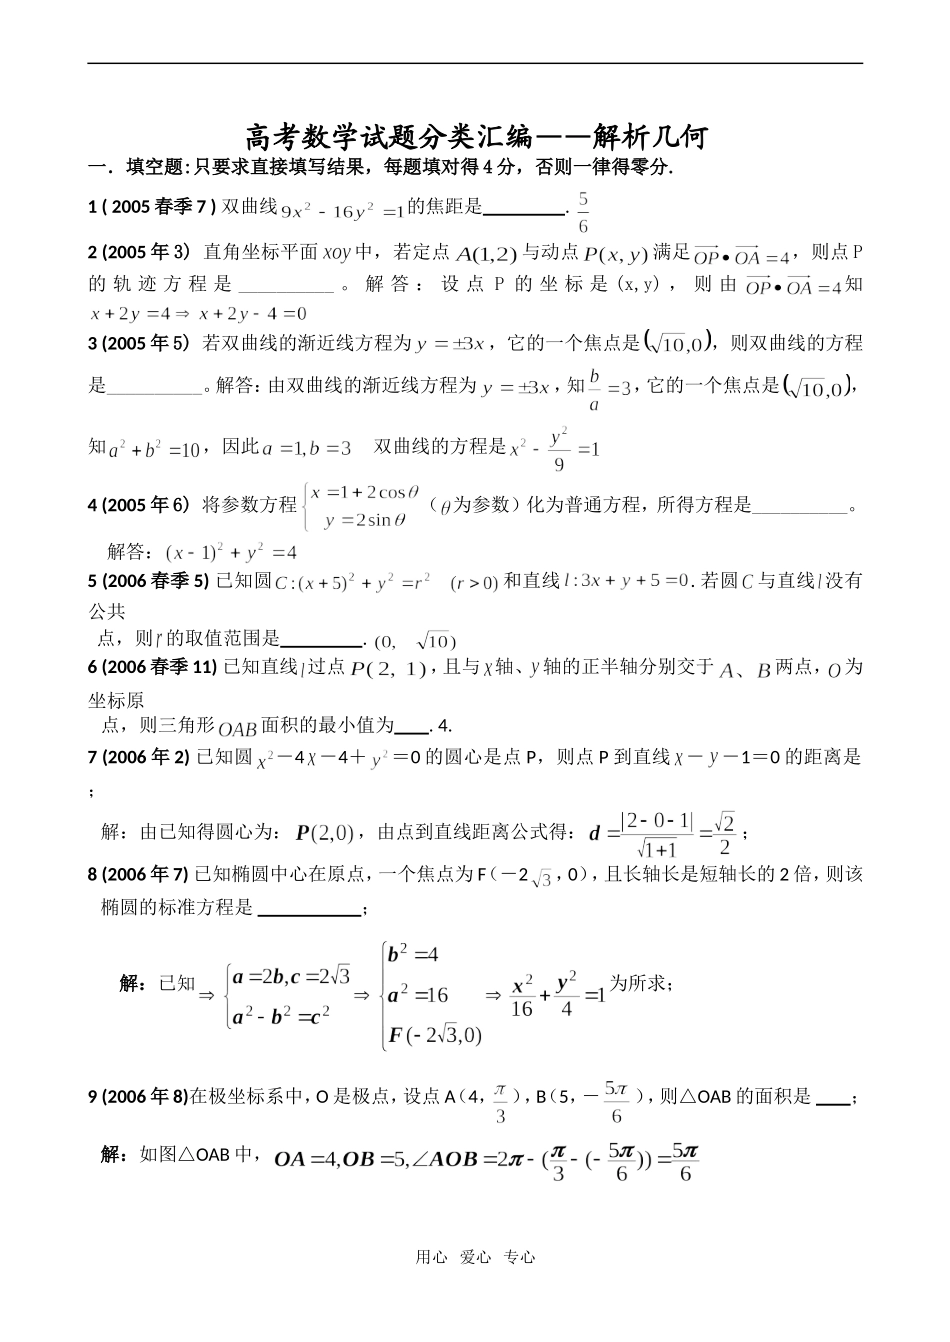 高考数学试题分类汇编——解析几何
一．填空题:只要求直接填写结果，每题填对得 4 分，否则一律得零分.
1 ( 2005 春季 7 ) 双曲线 9x² - 16y² = 1 的焦距是________. 5/6
2 (2005 年 3）直角坐标平面 xoy 中，若定点 A(1,2) 与动点 P(x,y) 满足 \overrightarrow{OP}•\overrightarrow{OA}=4，则点 P
的轨迹方程是__________。解答：设点 P 的坐标是(x,y)，则由 \overrightarrow{OP}•\overrightarrow{OA}=4 知
x+2y=4⇒x+2y-4=0
3 (2005 年 5）若双曲线的渐近线方程为 y=±3x，它的一个焦点是(√10,0)，则双曲线的方程
是__________。解答：由双曲线的渐近线方程为 y=±3x，知 b/a=3，它的一个焦点是(√10,0)，
知 a²+b²=10，因此 a=1,b=3 双曲线的方程是 x²-y²/9=1
4 (2005 年 6）将参数方程 { x=1+2cosθ y=2sinθ （θ为参数）化为普通方程，所得方程是__________。
解答：(x-1)²+y²=4
5 (2006 春季 5) 已知圆 C:(x+5)²+y²=r² (r>0) 和直线 l:3x+y+5=0. 若圆 C 与直线 l 没有
公共
点，则 r 的取值范围是________. (0, √10)
6 (2006 春季 11) 已知直线 l 过点 P(2, 1)，且与 x 轴、y 轴的正半轴分别交于 A、B 两点，O 为
坐标原
点，则三角形 OAB 面积的最小值为____. 4.
7 (2006 年 2) 已知圆 x²－4x－4＋y²＝0 的圆心是点 P，则点 P 到直线 x－y－1＝0 的距离是
；
解：由已知得圆心为：P(2,0)，由点到直线距离公式得：d=|2-0-1|/√(1+1)=√2/2；
8 (2006 年 7) 已知椭圆中心在原点，一个焦点为 F（－2√3，0），且长轴长是短轴长的 2 倍，则该
椭圆的标准方程是 __________；
解：已知⇒{ a=2b,c=2√3 a²-b²=c² ⇒{ b²=4 a²=16 F(-2√3,0) ⇒ x²/16+y²/4=1 为所求；
9 (2006 年 8)在极坐标系中，O 是极点，设点 A（4，π/3），B（5，－5π/6），则△OAB 的面积是 ____；
解：如图△OAB 中，OA=4,OB=5,∠AOB=2π-(π/3-(-5π/6))=5π/6
用心 爱心 专心